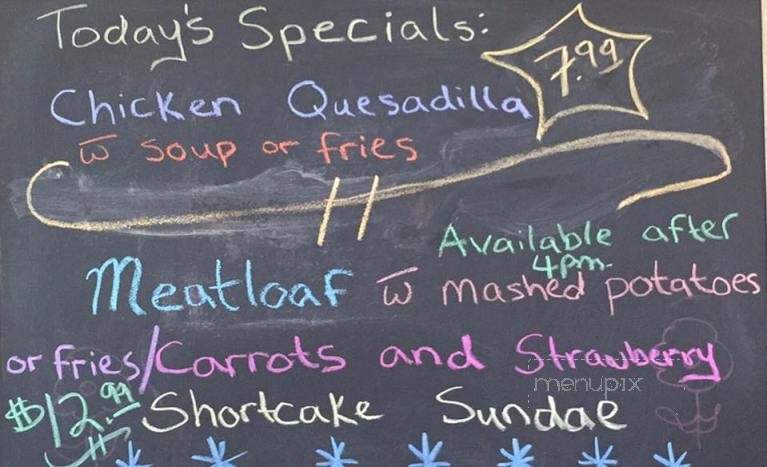 Today's Specials:
7.99
Chicken Quesadilla
w̅ soup or fries
Available after
4pm.
Meatloaf w̅ mashed potatoes
or fries/Carrots and Strawberry
$12.99 Shortcake Sundae
menupix